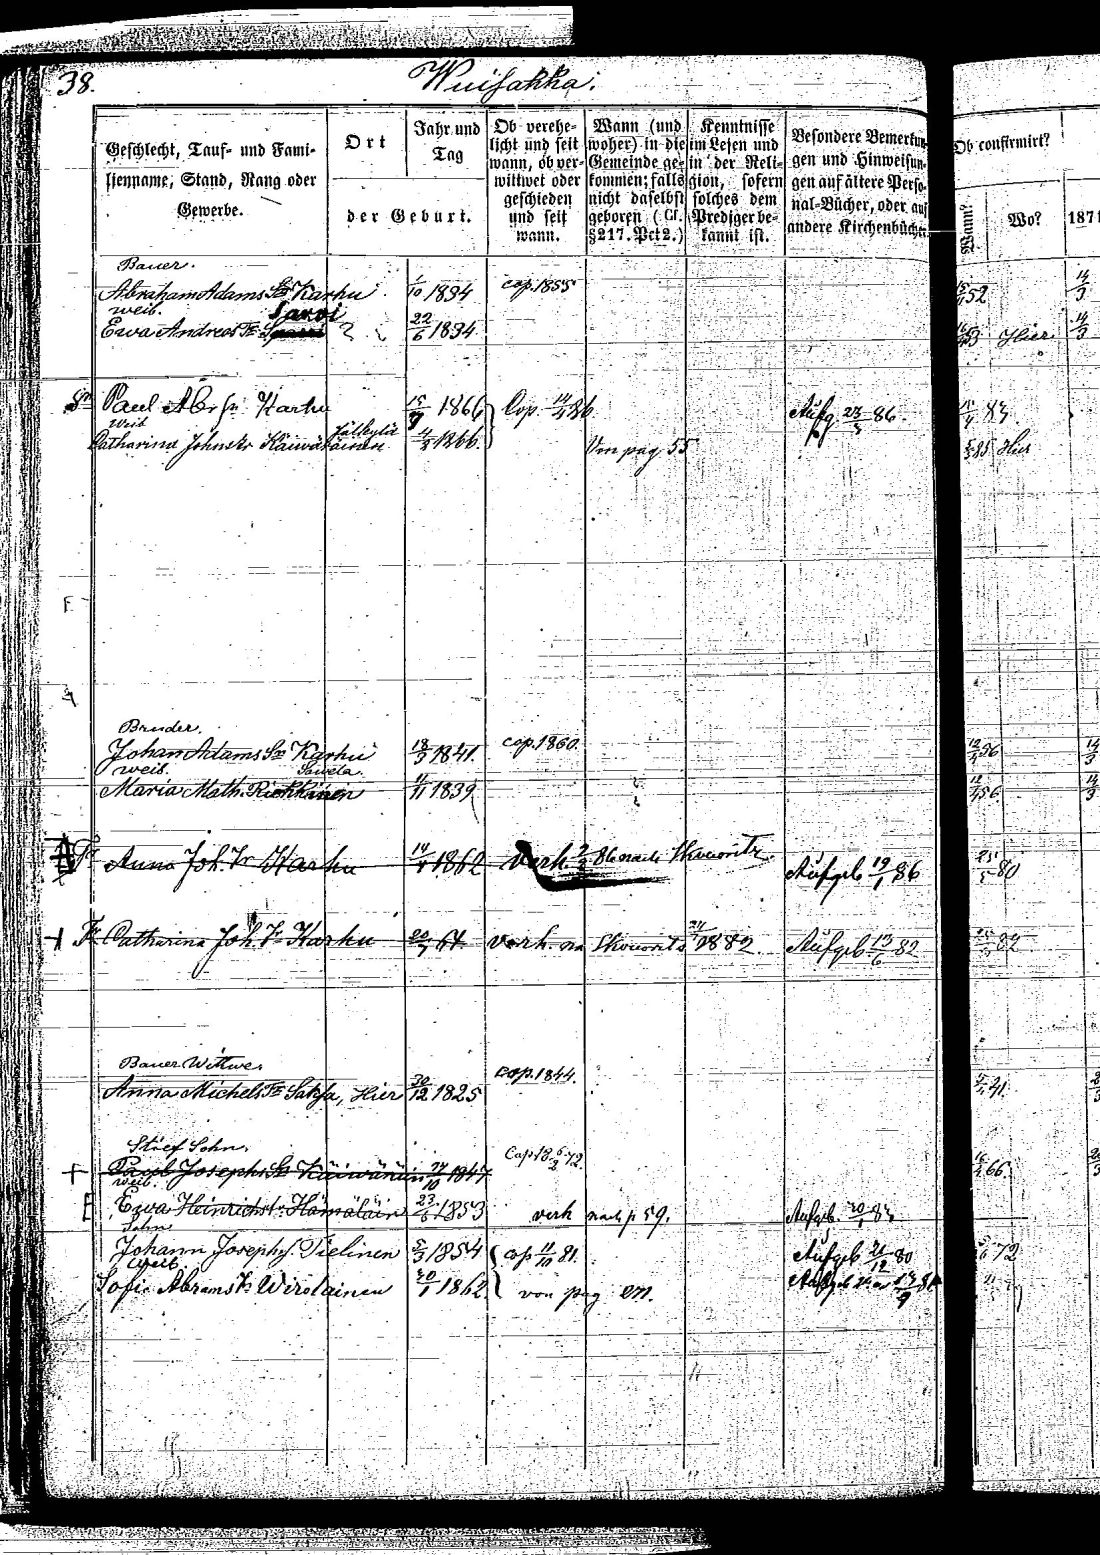 38.
Wuisakka.
Geschlecht, Tauf- und Fami-
lienname, Stand, Rang oder
Gewerbe.
Ort
Jahr und
Tag
der Geburt.
Ob verehe-
licht und seit
wann, ob ver-
wittwet oder
geschieden
und seit
wann.
Wann (und
woher) in die
Gemeinde ge-
kommen; falls
nicht daselbst
geboren (Cf.
§217. Pct 2.)
Kenntnisse
im Lesen und
in der Reli-
gion, sofern
solches dem
Prediger be-
kannt ist.
Besondere Bemerkun-
gen und Hinweisun-
gen auf ältere Perso-
nal-Bücher, oder auf
andere Kirchenbücher.
Ob confirmirt?
Wann?
Wo?
1871
Bauer.
Abraham Adams Sn Karhu 1/10 1834 cop. 1855 52 14/3
weib. Sarvi
Ewa Andreas Tr 22/6 1834 53 Hier 14/3
Sn Paul Abr Sn Karhu 15/9 1866 Cop. 14/4 86 Aufg 23/3 86. 83
Weib
Catharina Johnstr Käiwäräinen 1866. Von pag. 55 85 Hier
Bruder.
Johan Adams Sn Karhu 18/3 1841. cop. 1860. 56 14/3
weib. Sawela.
Maria Math. Rickkinen 11/11 1839 56. 14/3
Tr Anna Joh. Tr Karhu 1862 verh. 2/2 86 nach Skworitz. Aufgeb 19/1 86 80
+ Tr Catharina Joh. Tr Karhu 64 verh. na Skworitz 1882. Aufgeb. 13/6 82 82
Bauer Wittwe.
Anna Michels Tr Saksa, Hier 30/12 1825 cop. 1844. 41
Stief Sohn.
+ Paul Josephs Sn Käiwäräinen 27/10 1847 Cop 18 6/2 72 66.
weib.
Ewa Heinrichstr Hämäläin 23/6 1853 verh nach p 59. Aufgeb.
Sohn
Johann Josephs. Pielinen 5/3 1854 cop 11/10 81. Aufgeb 21/12 80 72
Weib.
Sofia Abrams Tr Wirolainen 1862 von pag Aufgeb